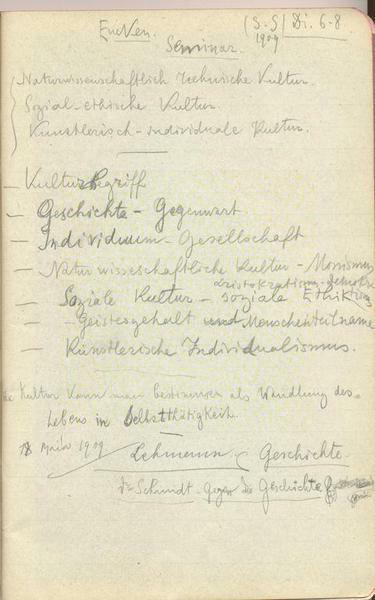 Eucken. (S-S) Di. 6-8
1909
Seminar.
Naturwissenschaftlich technische Kultur.
Sozial-ethische Kultur.
Künstlerisch-individuale Kultur.
— Kulturbegriff
— Geschichte - Gegenwart
— Individuum - Gesellschaft
— Naturwisseschaftliche Kultur - Monismus
Aristokratismus
— Soziale Kultur - soziale Ethik
— Geistesgehalt und Menschenteilname
— Künstlerische Individualismus.
Kultur kann man bestimmen als Wandlung des
Lebens in Selbstthätigkeit.
18 1909 Lehmann Geschichte.
Dr Schmidt - Gegen die Geschichte